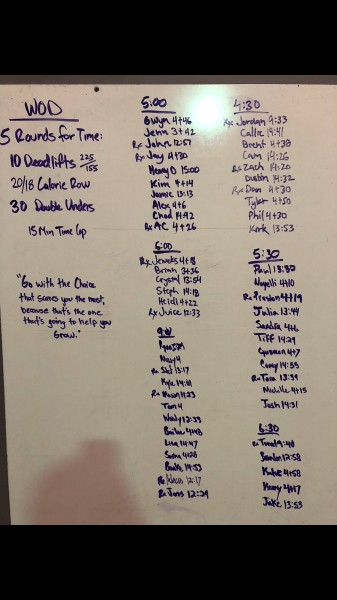 WOD
5 Rounds for Time:
10 Deadlifts 225/155
20/18 Calorie Row
30 Double Unders
15 Min Time Cap
"Go with the Choice
that scares you the most,
because that's the one
that's going to help you
Grow."
5:00
Gwyn 4+46
Jenn 3+42
Rx John 12:57
Rx Jay 4+30
Henry D 15:00
Kim 4+14
Jamie 13:13
Alex 4+6
Chad 14:42
Rx AC 4+26
6:00
Rx Jewels 4+8
Brinn 3+36
Crystal 13:54
Steph 14:18
Heidi 4+22
Rx Juice 12:33
9
Mary 4
Rx 13:17
Kyle 14:01
Rx Mason 11:23
Tom 4
Wendy 12:33
4+48
Lisa 14:47
4+28
14:53
Rx 12:17
Rx 12:29
4:30
Rx Jordan 9:33
Callie 14:41
Brent 4+38
Cam 14:26
Rx Zach 14:20
Dustin 14:32
Rx Dan 4+30
Tyler 4+50
Phil 4+30
Kirk 13:53
5:30
Paul 13:50
Nayelli 4+10
Rx Preston 4+19
Julia 13:44
Sandra
Tiff 14:29
Guzman 4+7
Corey 14:55
Rx Tara 13:39
Michelle 4+15
Josh 14:31
6:30
Rx 9:40
12:58
4+58
Henry 4+17
Jake 13:53